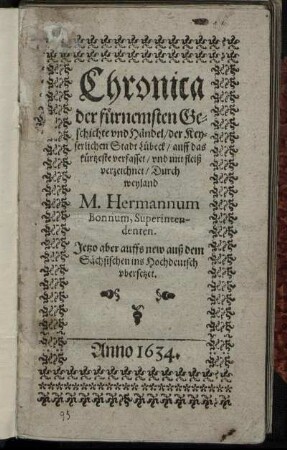 Chronica
der fürnemsten Ge-
schichte vnd Händel/ der Key-
serlichen Stadt Lübeck/ auff das
kürtzeste verfasset/ vnd mit fleiß
verzeichnet/ Durch
weyland
M. Hermannum
Bonnum, Superinten-
denten.
Jetzo aber auffs new auß dem
Sächsischen ins Hochdeutsch
vbersetzet.
Anno 1634.
95